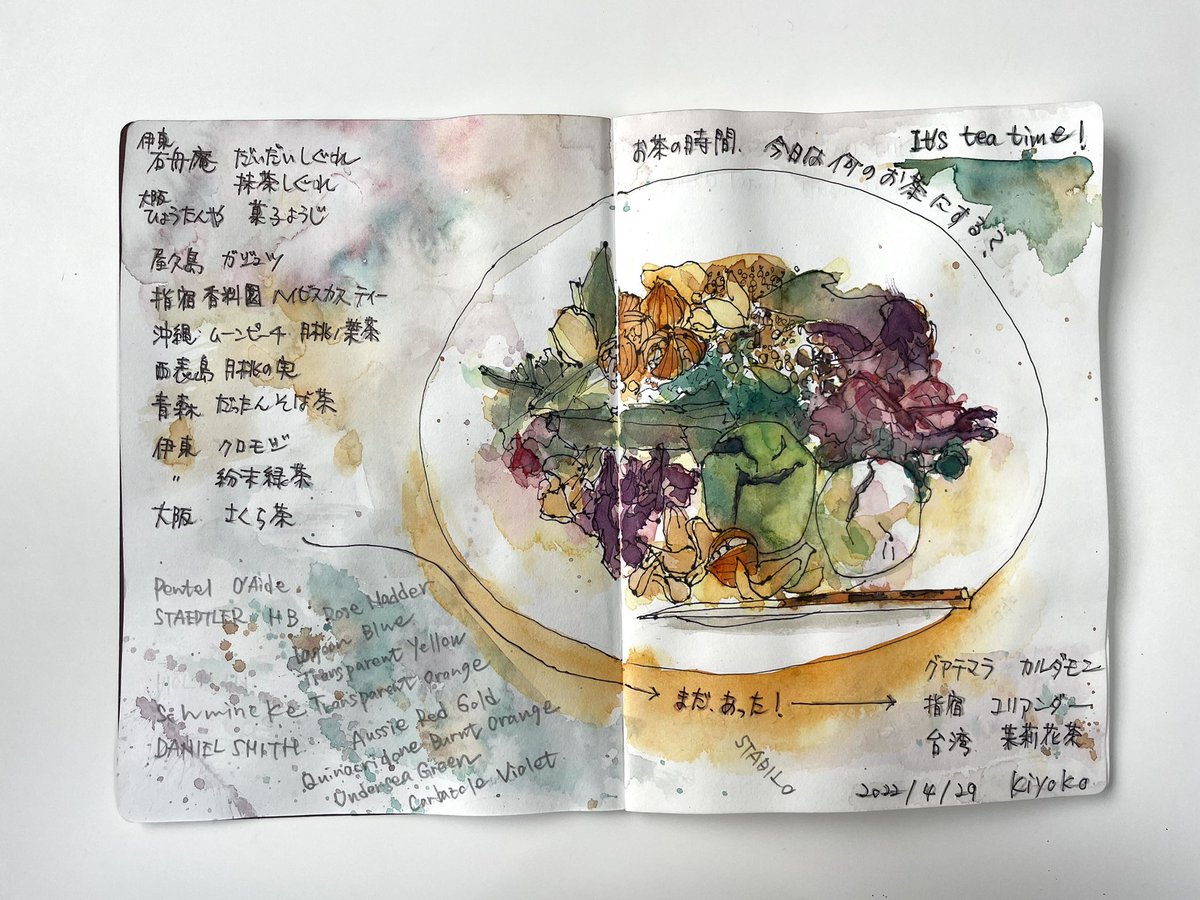 伊東
石舟庵 だいだいしぐれ
抹茶しぐれ
大阪
ひょうたんや 菓子ようじ
屋久島 ガジュツ
指宿 香料園 ハイビスカス ティー
沖縄 ムーンピーチ 月桃ノ葉茶
西表島 月桃の実
青森 だったんそば茶
伊東 クロモジ
〃 粉末緑茶
大阪 さくら茶
Pentel
STAEDTLER HB Rose Madder
Lagoon Blue
Transparent Yellow
Schmincke Transparent Orange
DANIEL SMITH Aussie Red Gold
Quinacridone Burnt Orange
Undersea Green
Carbazole Violet
お茶の時間、今日は何のお茶にする?
It's tea time!
まだ、あった!
グアテマラ カルダモン
指宿 コリアンダー
台湾 茉莉花茶
STABILO
2022/4/29 Kiyoko